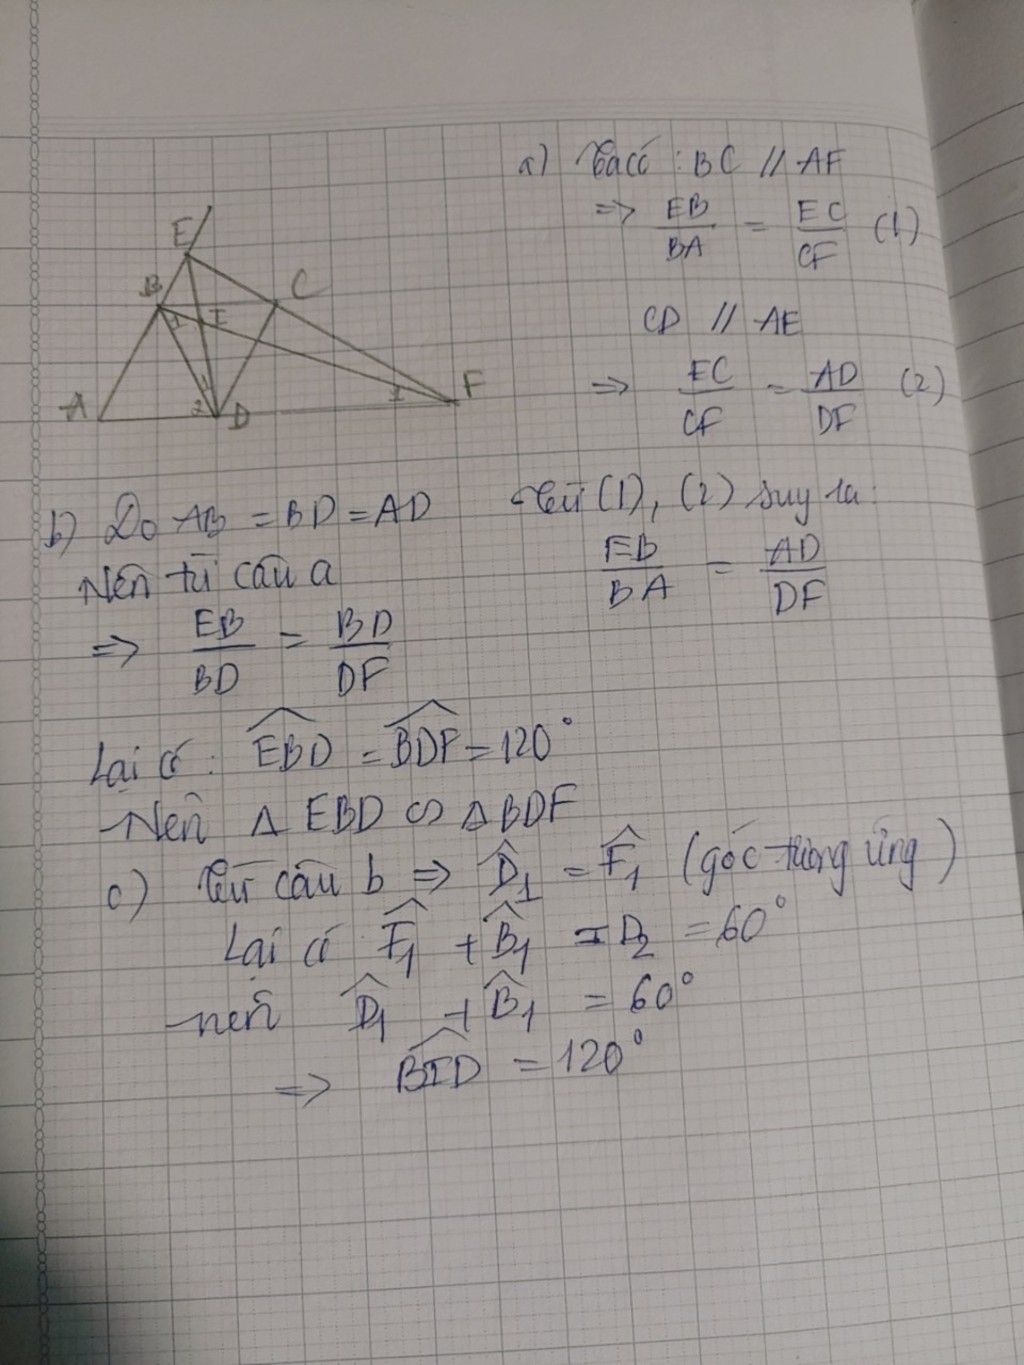 E
B
C
I
1
1
1
2
A
D
F
a) Ta có : BC // AF
=> EB/BA = EC/CF (1)
CD // AE
=> EC/CF = AD/DF (2)
Từ (1), (2) suy ra :
EB/BA = AD/DF
b) Do AB = BD = AD
Nên từ câu a
=> EB/BD = BD/DF
Lại có : \widehat{EBD} = \widehat{BDF} = 120°
Nên Δ EBD ∽ Δ BDF
c) Từ câu b => \widehat{D}₁ = \widehat{F}₁ (góc tương ứng)
Lại có \widehat{F}₁ + \widehat{B}₁ = D₂ = 60°
nên \widehat{D}₁ + \widehat{B}₁ = 60°
=> \widehat{BID} = 120°